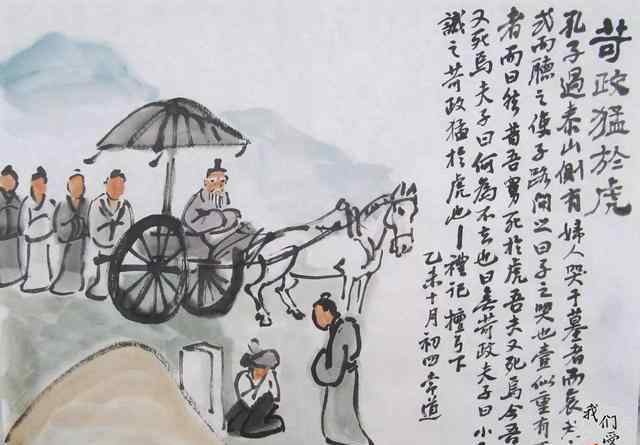 苛政猛於虎
孔子過泰山側有婦人哭于墓者而哀夫
式而聽之使子路問之曰子之哭也壹似重有
者而曰然昔吾舅死於虎吾夫又死焉今吾
又死焉夫子曰何為不去也曰無苛政夫子曰小
識之苛政猛於虎也—禮記檀弓下
乙未十月初四李道
我们爱